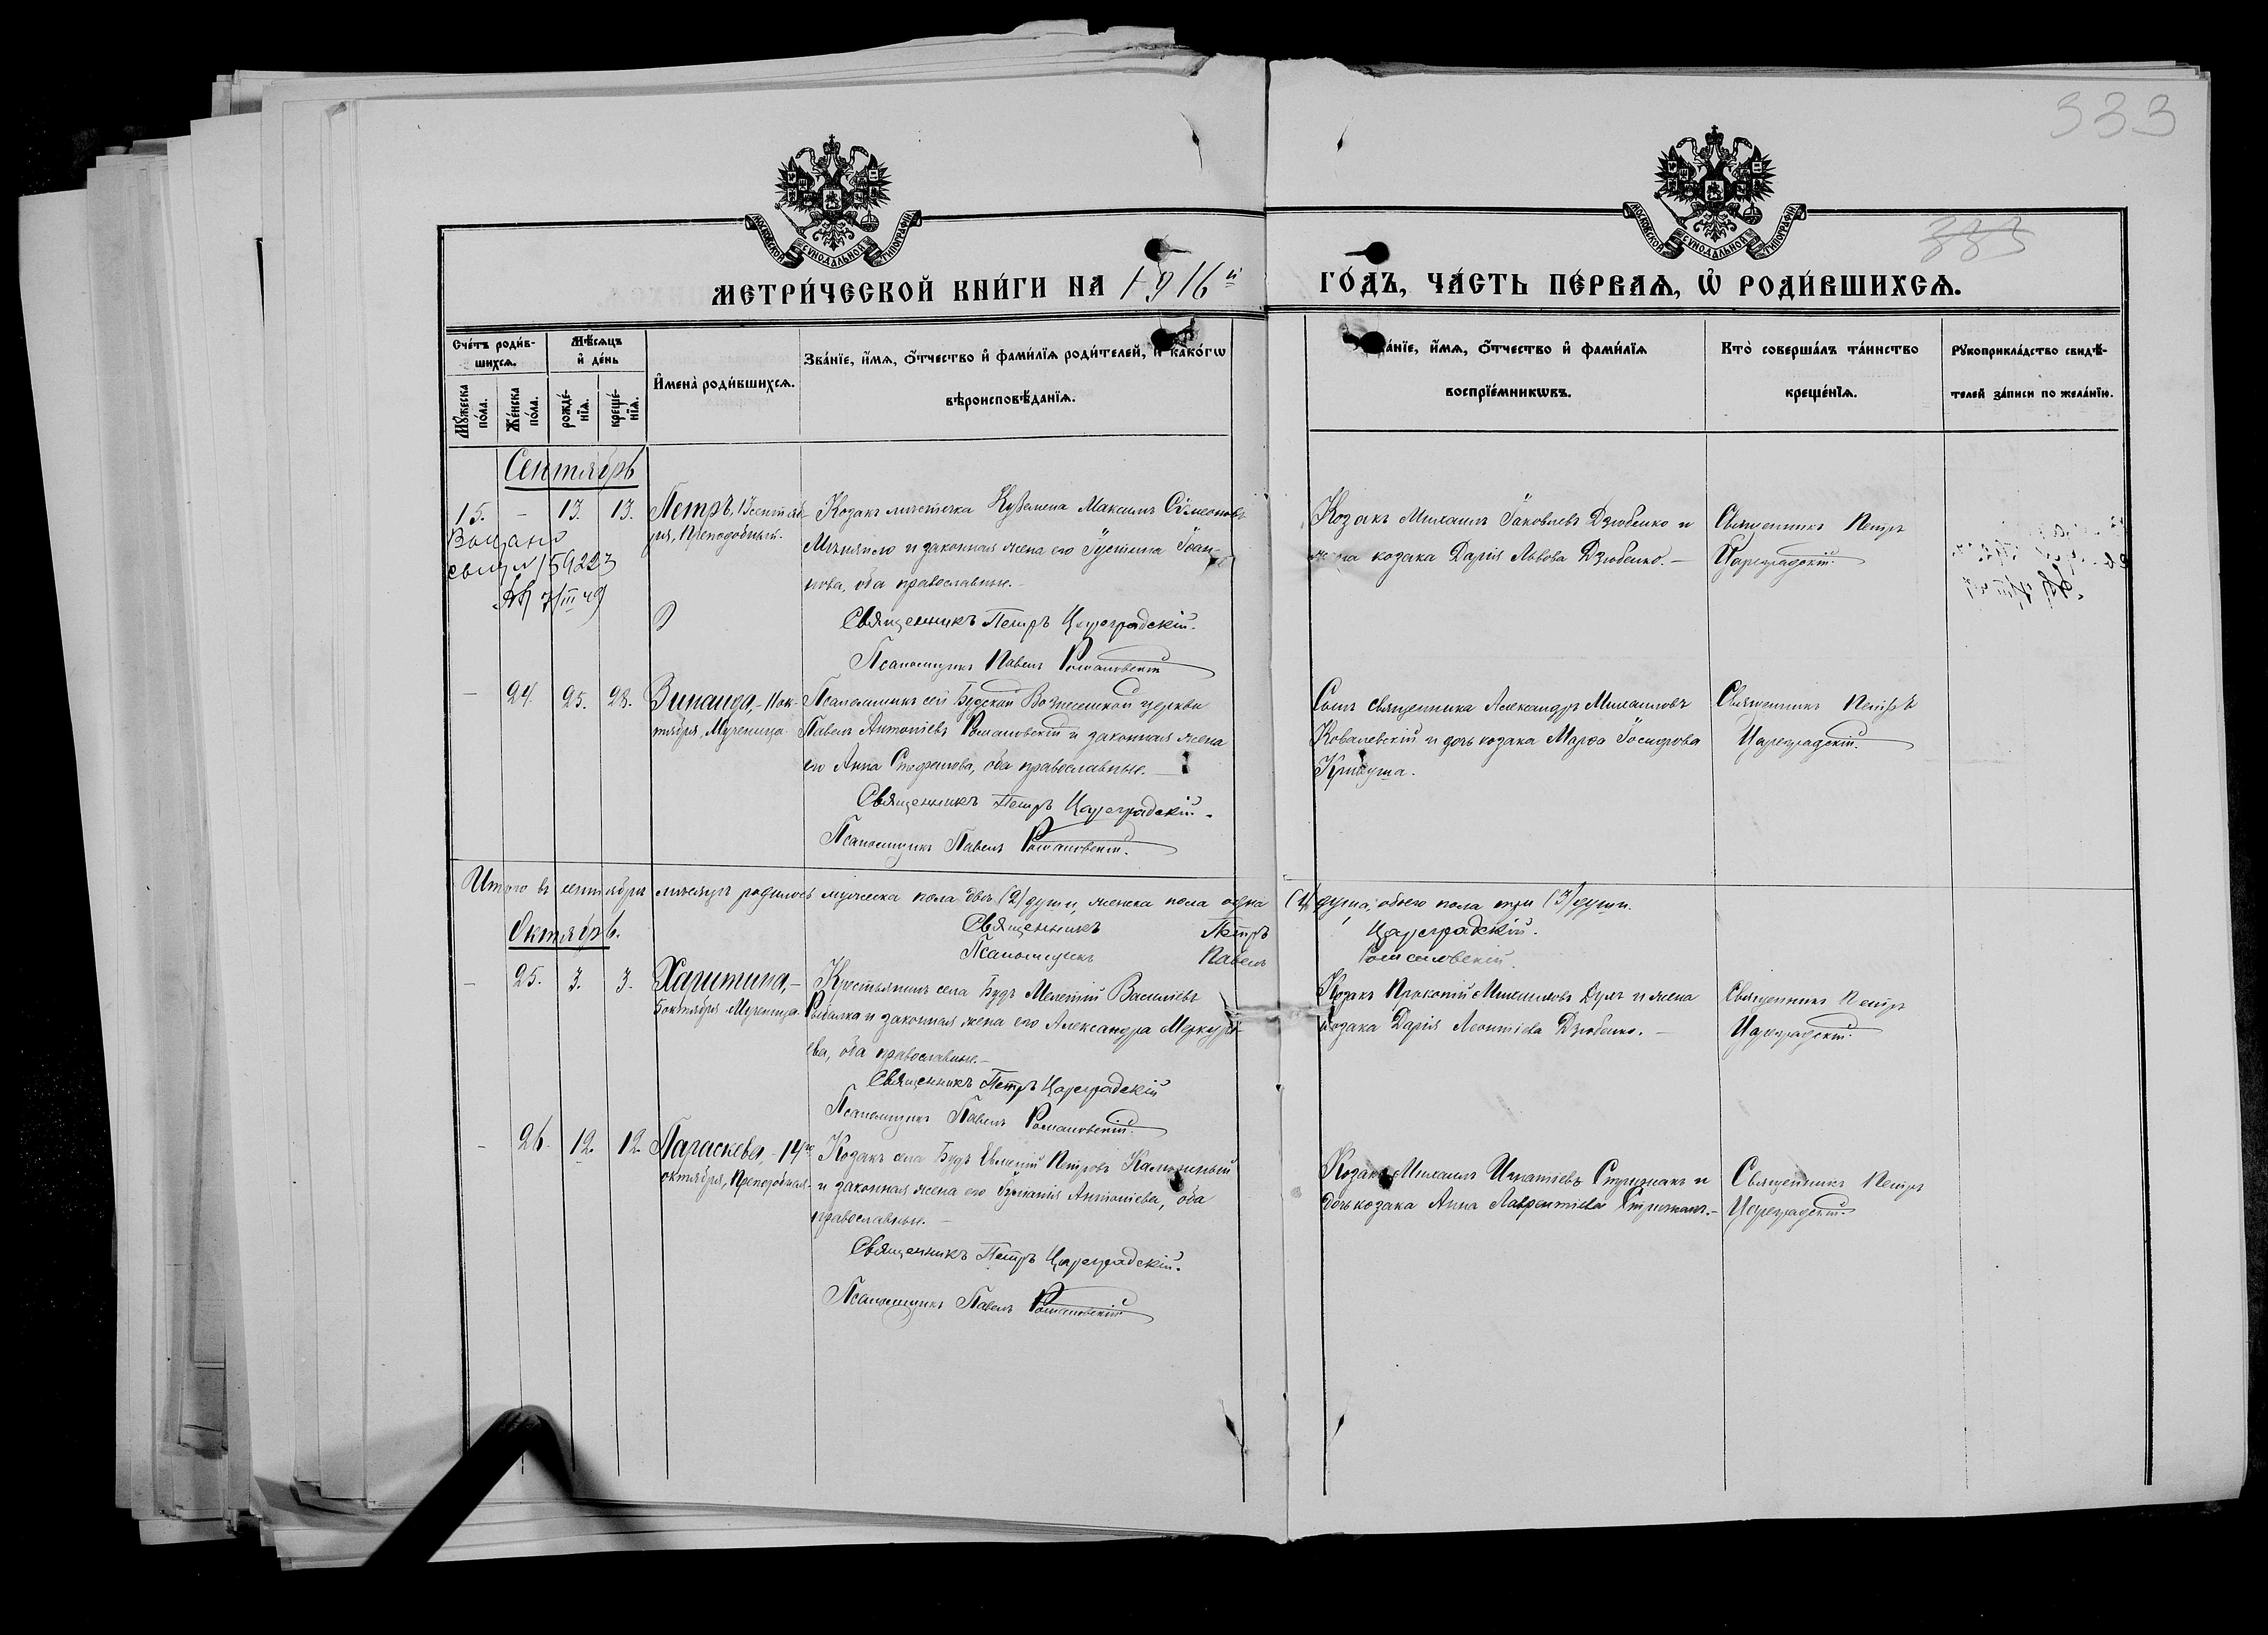 333
333
МОСКОВСКОЙ СУНОДАЛЬНОЙ ТИПОГРАФІИ
МОСКОВСКОЙ СУНОДАЛЬНОЙ ТИПОГРАФІИ
МЕТРИ́ЧЕСКОЙ КНИ́ГИ НА 1916й ГО́ДЪ, ЧА́СТЬ ПЕ́РВАѦ, Ѡ҆ РОДИ́ВШИХСѦ.
Сче́тъ роди́в-
шихсѧ.
Мꙋ́жеска по́ла.
Же́нска по́ла.
Мѣ́сѧцъ
и҆ де́нь
рожде́-
нїѧ.
креще́-
нїѧ.
И҆мена̀ роди́вшихсѧ.
Зва́нїе, и҆́мѧ, ѻ҆́тчество и҆ фами́лїѧ роди́телей, и҆ како́гѡ
вѣроисповѣ́данїѧ.
а́нїе, и҆́мѧ, ѻ҆́тчество и҆ фами́лїѧ
воспрїе́мникѡвъ.
Кто̀ соверша́лъ та́инство
креще́нїѧ.
Рꙋкоприкла́дство свидѣ́-
телей за́писи по жела́нїю.
Сентябрь
15. - 13. 13. Петръ, 13 сентяб-
ря, Преподобный.
Козакъ мѣстечка Максимъ Сѵмеоновъ
и законная жена его Іустина Іоан-
нова, оба православные.-
Священникъ Петръ Цареградскій.
Псаломщикъ Павелъ Романовскій
Козакъ Михаилъ Іаковлевъ Дзюбенко и
жена козака Дарія Львова Дзюбенко.-
Священникъ Петръ
Цареградскій.
159223
7/III 49
- 24. 25. 28. Зинаида,- 11 ок-
тября, Мученица.
Псаломщикъ сей Будской Вознесенской церкви
Павелъ Антоніевъ Романовскій и законная жена
его Анна Стефанова, оба православные.-
Священникъ Петръ Цареградскій.
Псаломщикъ Павелъ Романовскій.
Сынъ священника Александръ Михаиловъ
Ковалевскій и дочь козака Марфа Іосифова
Священникъ Петръ
Цареградскій.
Итого въ сентябрѣ мѣсяцѣ родилось мужеска пола двѣ (2) души, женска пола одна (1) душа, обоего пола три (3) души.
Священникъ Петръ Цареградскій.
Псаломщикъ Павелъ Романовскій.
Октябрь.
- 25. 3. 3. Харитина,-
5 октября Мученица.
Крестьянинъ села Будъ Мелетій Василіевъ
Рыбалка и законная жена его Александра Меркурі-
ева, оба православные.-
Священникъ Петръ Цареградскій
Псаломщикъ Павелъ Романовскій.
Козакъ Прокопій Михаиловъ и жена
козака Дарія Леонтіева Дзюбенко.-
Священникъ Петръ
Цареградскій.
- 26. 12. 12. Параскева,- 14го
октября, Преподобная.
Козакъ села Будъ Петровъ
и законная жена его Антоніева, оба
православные.-
Священникъ Петръ Цареградскій.
Псаломщикъ Павелъ Романовскій
Козакъ Михаилъ Игнатіевъ Стрижакъ и
дочь козака Анна Лаврентіева Стрижакъ.-
Священникъ Петръ
Цареградскій.